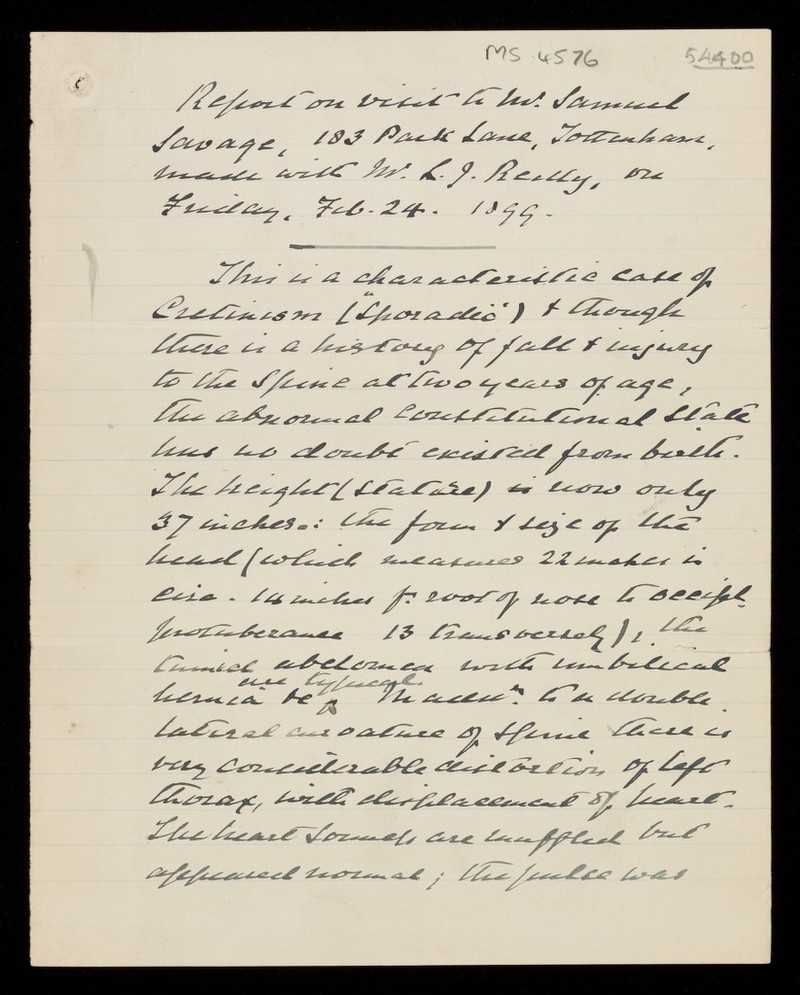 MS. 4576
54400
Report on visit to Mr. Samuel
Savage, 183 Park Lane, Tottenham,
made with Mr. L. J. Reilly, on
Friday, Feb. 24. 1899.
This is a characteristic case of
Cretinism ("Sporadic") & though
there is a history of fall & injury
to the Spine at two years of age,
the abnormal Constitutional State
has no doubt existed from birth.
The height (Stature) is now only
37 inches: the form & size of the
head (which measures 22 inches in
circ. 14 inches fr. root of nose to occipl.
protuberance 13 transversely); the
tumid abdomen with umbilical
are typical.
hernia &c In addn. to a double
lateral curvature of Spine there is
very considerable distortion of left
thorax, with displacement of heart.
The heart Sounds are muffled but
appeared normal; the pulse was